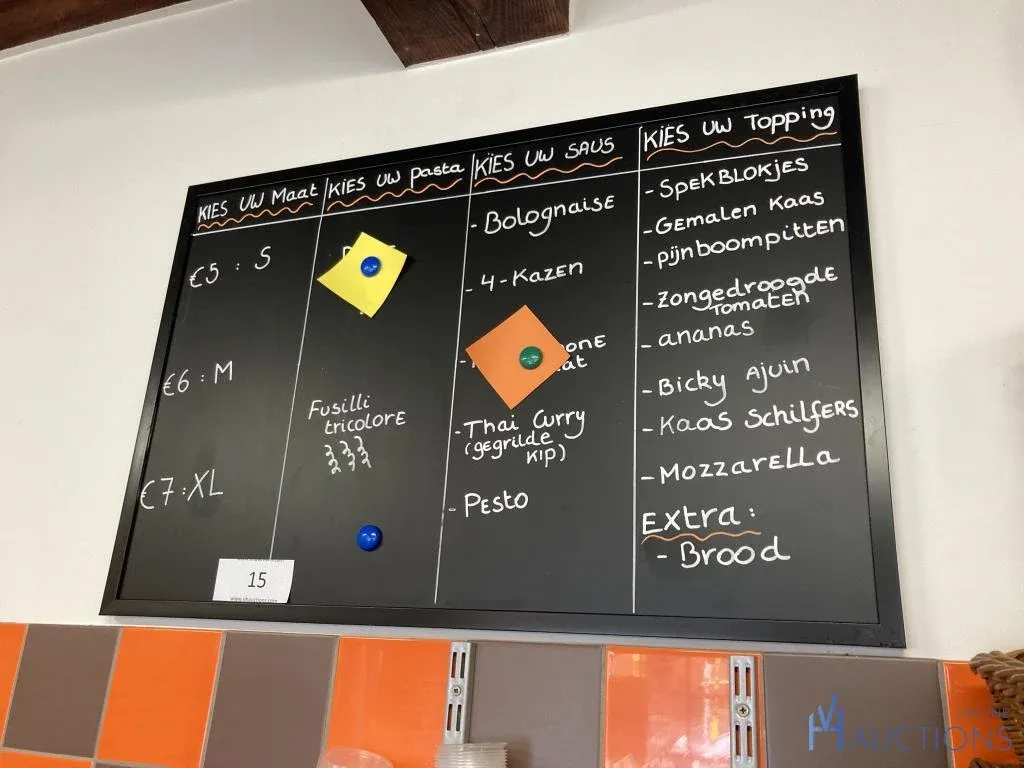 KIES UW Maat
€5 : S
€6 : M
€7 : XL
KIES UW pasta
Fusilli
tricolore
KIES UW SAUS
- Bolognaise
- 4-Kazen
- Thai Curry
(gegrilde
kip)
- Pesto
KIES UW Topping
- SpekBlokjes
- Gemalen Kaas
- pijnboompitten
- Zongedroogde
Tomaten
- ananas
- Bicky Ajuin
- Kaas Schilfers
- Mozzarella
Extra :
- Brood
15
AUCTIONS